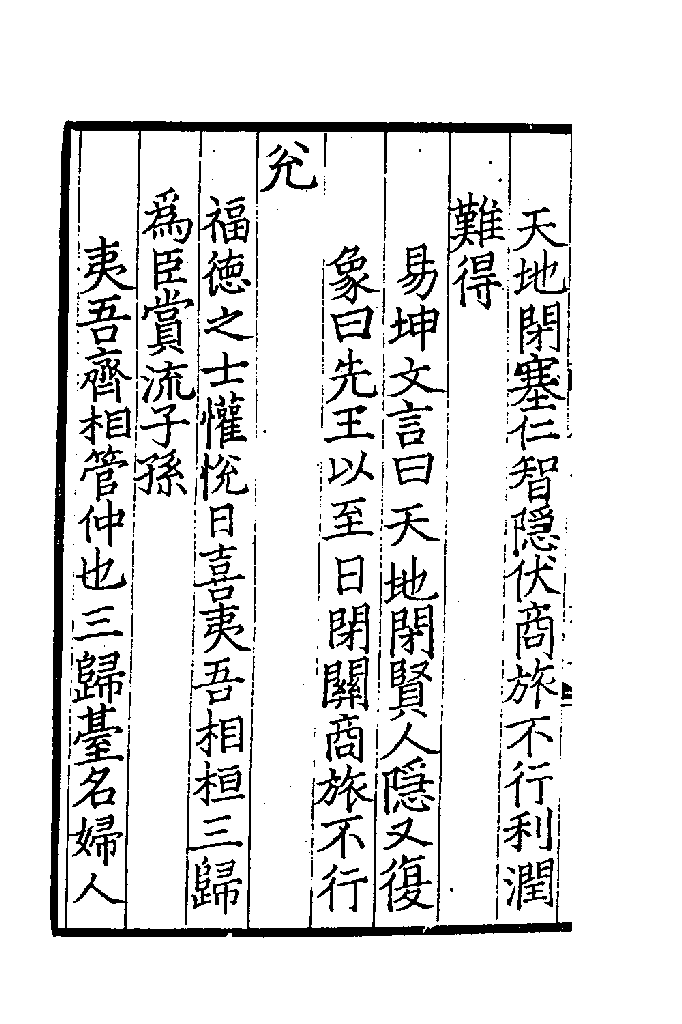 天地閉塞仁智隱伏商旅不行利潤
難得
易坤文言曰天地閉賢人隱又復
象曰先王以至日閉關商旅不行
兊
福德之士懽恱日喜夷吾相桓三歸
爲臣賞流子孫
夷吾齊相管仲也三歸臺名婦人